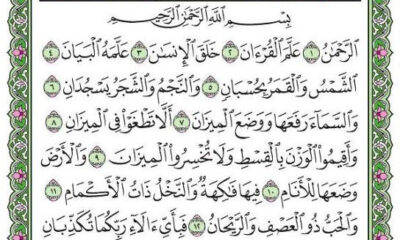 بِسْمِ اللَّهِ الرَّحْمَٰنِ الرَّحِيمِ
الرَّحْمَٰنُ ١ عَلَّمَ الْقُرْءَانَ ٢ خَلَقَ الْإِنسَٰنَ ٣ عَلَّمَهُ الْبَيَانَ ٤
الشَّمْسُ وَالْقَمَرُ بِحُسْبَانٍ ٥ وَالنَّجْمُ وَالشَّجَرُ يَسْجُدَانِ ٦
وَالسَّمَآءَ رَفَعَهَا وَوَضَعَ الْمِيزَانَ ٧ أَلَّا تَطْغَوْا فِي الْمِيزَانِ ٨
وَأَقِيمُوا الْوَزْنَ بِالْقِسْطِ وَلَا تُخْسِرُوا الْمِيزَانَ ٩ وَالْأَرْضَ
وَضَعَهَا لِلْأَنَامِ ١٠ فِيهَا فَٰكِهَةٌ وَالنَّخْلُ ذَاتُ الْأَكْمَامِ ١١
وَالْحَبُّ ذُو الْعَصْفِ وَالرَّيْحَانُ ١٢ فَبِأَيِّ ءَالَآءِ رَبِّكُمَا تُكَذِّبَانِ